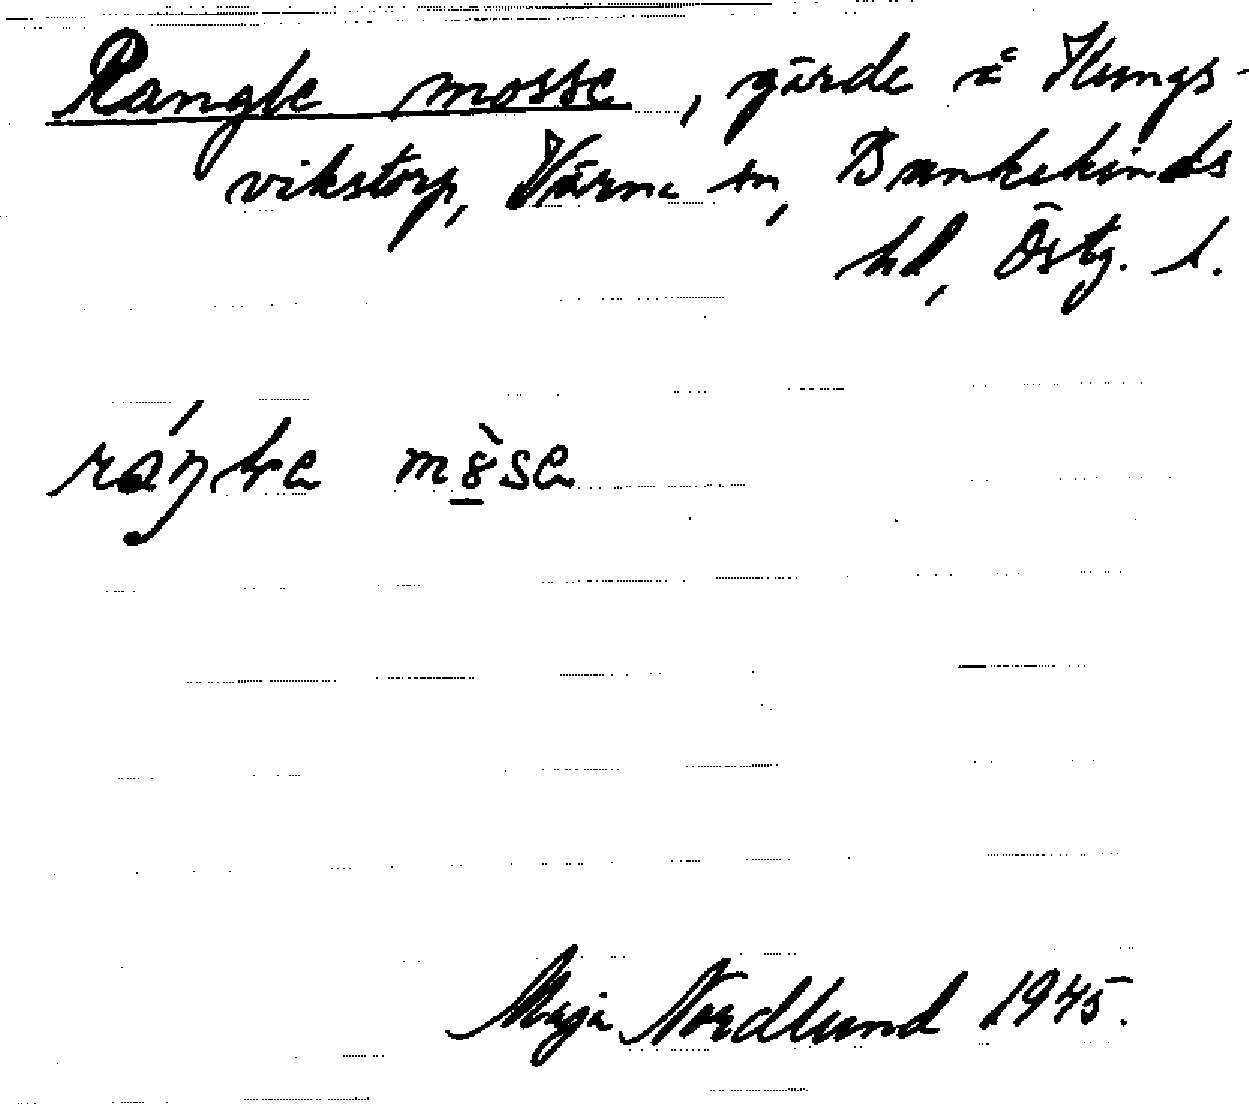 Rangle mosse, gärde i Kungs-
vikstorp, Värna sn, Bankekinds
hd, Östg. l.
Maja Nordlund 1945.